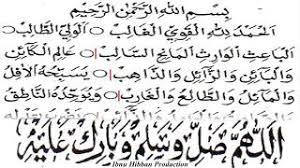 بِسْمِ اللهِ الرَّحْمٰنِ الرَّحِيْمِ
اَلْحَمْدُ لِلّٰهِ الْقَوِيِّ الْغَالِبْ اَلْوَلِيِّ الطَّالِبْ
اَلْبَاعِثِ الْوَارِثِ الْمَانِحِ السَّالِبْ عَالِمِ الْكَائِنِ
وَالْبَائِنِ وَالزَّائِلِ وَالذَّاهِبْ يُسَبِّحُهُ الْآفِلُ
وَالْمَائِلُ وَالطَّالِعُ وَالْغَارِبْ وَيُوَحِّدُهُ النَّاطِقُ
اَللّٰهُمَّ صَلِّ وَسَلِّمْ وَبَارِكْ عَلَيْهِ
Ibnu Hibban Production